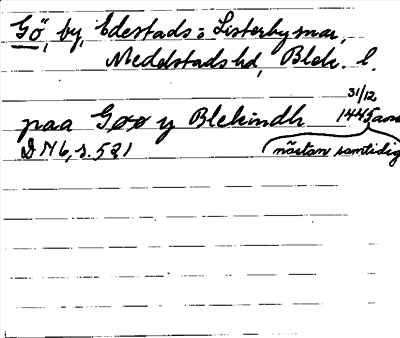 Gö, by, Edestads o Listerby snar,
Medelstads hd, Blek. l.
31/12
paa Gøø y Blekindh 1445 avs
DN 6, s. 521 (nästan samtidig